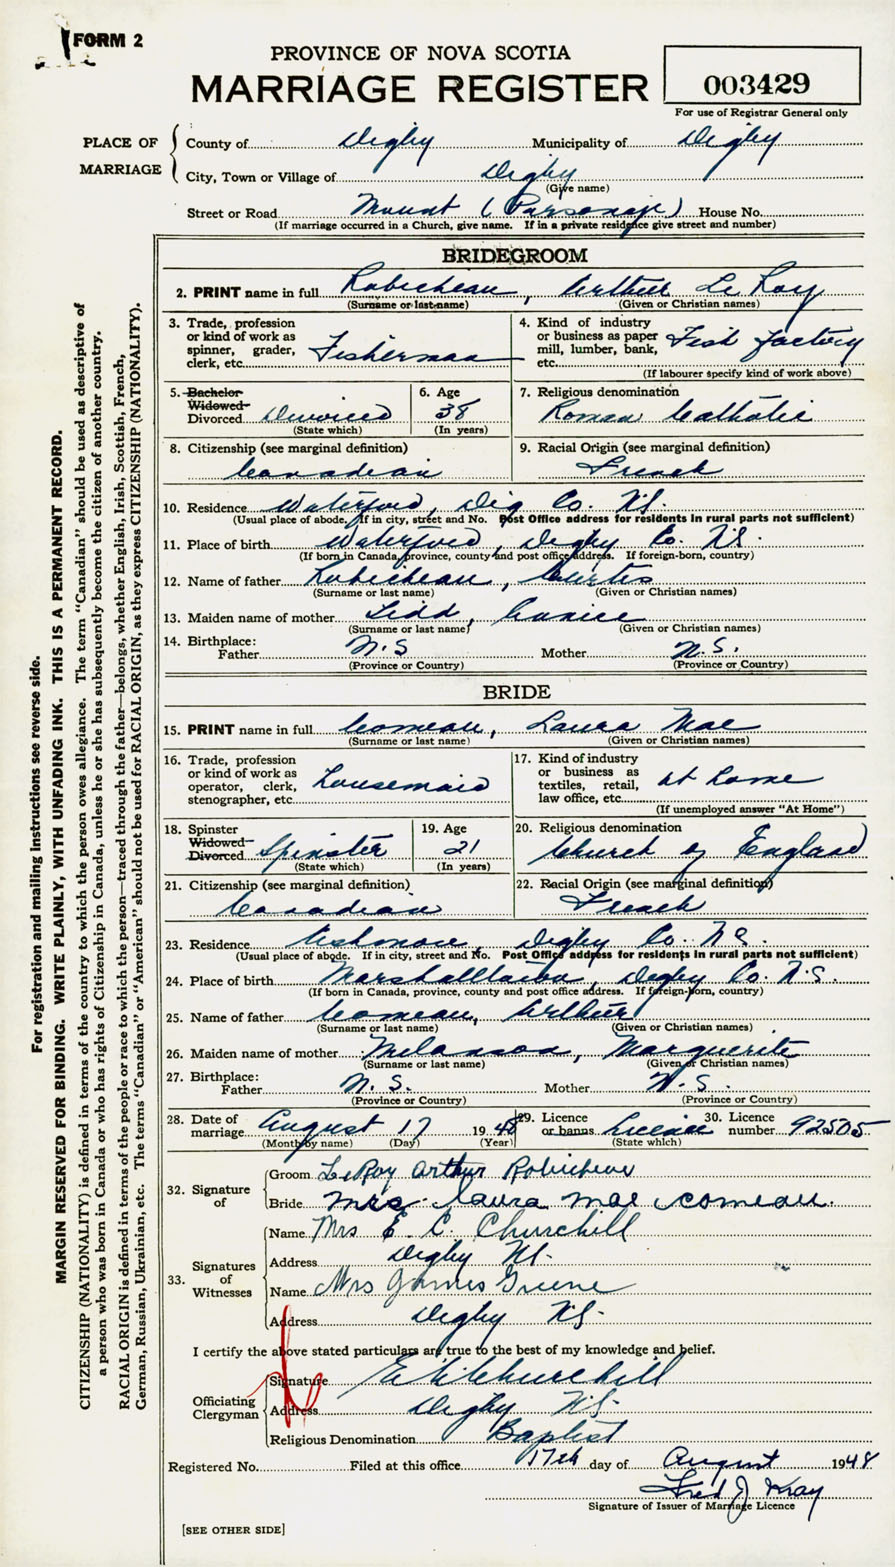 FORM 2
PROVINCE OF NOVA SCOTIA
MARRIAGE REGISTER
003429
For use of Registrar General only
PLACE OF MARRIAGE
County of Digby Municipality of Digby
City, Town or Village of Digby
(Give name)
Street or Road Mount (Parsonage) House No.
(If marriage occurred in a Church, give name. If in a private residence give street and number)
BRIDEGROOM
2. PRINT name in full Robicheau, Arthur Le Roy
(Surname or last name) (Given or Christian names)
3. Trade, profession or kind of work as spinner, grader, clerk, etc. Fisherman
4. Kind of industry or business as paper mill, lumber, bank, etc. Fish factory
(If labourer specify kind of work above)
5. Bachelor Widowed Divorced Divorced
(State which)
6. Age 38
(In years)
7. Religious denomination
Roman Catholic
8. Citizenship (see marginal definition)
Canadian
9. Racial Origin (see marginal definition)
French
10. Residence Waterford, Dig Co. N.S.
(Usual place of abode. If in city, street and No. Post Office address for residents in rural parts not sufficient)
11. Place of birth Waterford, Digby Co. N.S.
(If born in Canada, province, county and post office address. If foreign-born, country)
12. Name of father Robicheau, Curtis
(Surname or last name) (Given or Christian names)
13. Maiden name of mother Eunice
(Surname or last name) (Given or Christian names)
14. Birthplace:
Father N.S Mother N.S.
(Province or Country) (Province or Country)
BRIDE
15. PRINT name in full Comeau, Laura Mae
(Surname or last name) (Given or Christian names)
16. Trade, profession or kind of work as operator, clerk, stenographer, etc. Housemaid
17. Kind of industry or business as textiles, retail, law office, etc. At Home
(If unemployed answer "At Home")
18. Spinster Widowed Divorced Spinster
(State which)
19. Age 21
(In years)
20. Religious denomination
Church of England
21. Citizenship (see marginal definition)
Canadian
22. Racial Origin (see marginal definition)
French
23. Residence Ashmore, Digby Co. N.S.
(Usual place of abode. If in city, street and No. Post Office address for residents in rural parts not sufficient)
24. Place of birth Marshalltown, Digby Co. N.S.
(If born in Canada, province, county and post office address. If foreign-born, country)
25. Name of father Comeau, Arthur
(Surname or last name) (Given or Christian names)
26. Maiden name of mother Melanson, Marguerite
(Surname or last name) (Given or Christian names)
27. Birthplace:
Father N.S. Mother N.S.
(Province or Country) (Province or Country)
28. Date of marriage August 17 1948
(Month by name) (Day) (Year)
29. Licence or banns Licence
(State which)
30. Licence number 92505
32. Signature of
Groom LeRoy Arthur Robicheau
Bride Mrs. Laura Mae Comeau.
33. Signatures of Witnesses
Name Mrs E. C. Churchill
Address Digby N.S.
Name Mrs James Greene
Address Digby N.S.
I certify the above stated particulars are true to the best of my knowledge and belief.
Officiating Clergyman
Signature Churchill
Address Digby N.S.
Religious Denomination Baptist
Registered No. Filed at this office 17th day of August 1948
Fred J Kay
Signature of Issuer of Marriage Licence
[SEE OTHER SIDE]
For registration and mailing instructions see reverse side.
MARGIN RESERVED FOR BINDING. WRITE PLAINLY, WITH UNFADING INK. THIS IS A PERMANENT RECORD.
CITIZENSHIP (NATIONALITY) is defined in terms of the country to which the person owes allegiance. The term "Canadian" should be used as descriptive of
a person who was born in Canada or who has rights of Citizenship in Canada, unless he or she has subsequently become the citizen of another country.
RACIAL ORIGIN is defined in terms of the people or race to which the person—traced through the father—belongs, whether English, Irish, Scottish, French,
German, Russian, Ukrainian, etc. The terms "Canadian" or "American" should not be used for RACIAL ORIGIN, as they express CITIZENSHIP (NATIONALITY).